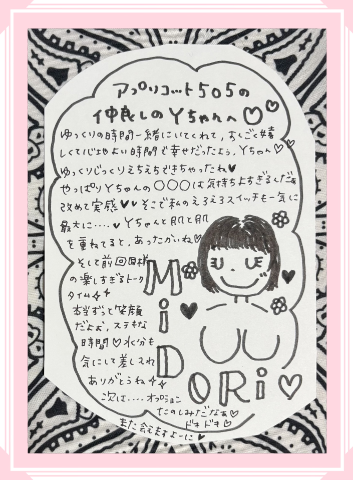 アプリコット505の
仲良しのYちゃんへ♡♡
ゆっくりの時間一緒にいてくれて、すごく嬉
しくて
時間で幸せだったよう、Yちゃん♡♡
ゆっくりじっくりえちえちできちゃったね♥
やっぱりYちゃんの〇〇〇は気持ちよすぎるんだなぁ
改めて実感♥♥そこで私のえろえろスイッチも一気に
最大に‥‥♥Yちゃんと肌と肌
を重ねてると、あったかいね♡
そして前回同様
の楽しすぎるトーク
タイム
本当ずっと笑顔
だよぉ、ステキな
時間♡水分も
気にして差し入れ
ありがとうね
次は‥‥オプション
たのしみだなぁ♡
ドキドキ♡
また会えますよーに♡
MiDORi♡